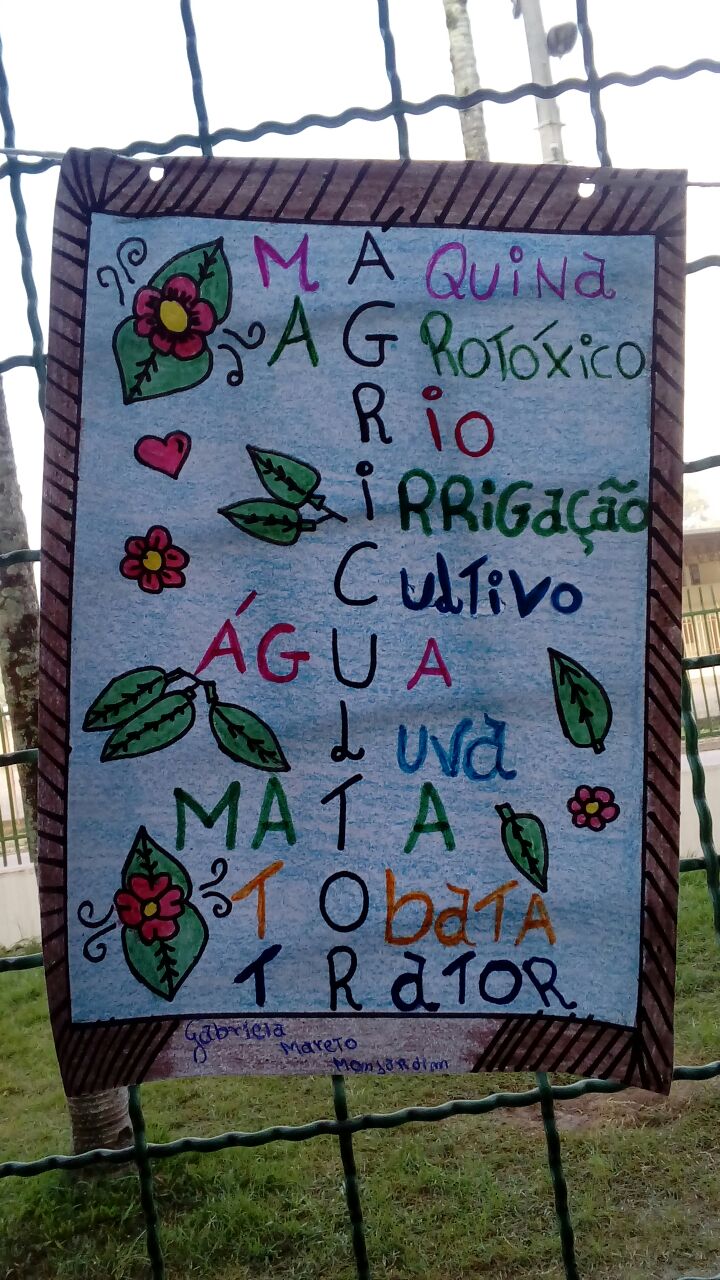 MÁQUiNa
AGROTÓXiCO
Rio
iRRiGaÇão
CULTiVO
ÁGUA
LUVa
MATA
TObaTA
TRaTOR
Gabriela
Mareto
Monjardim